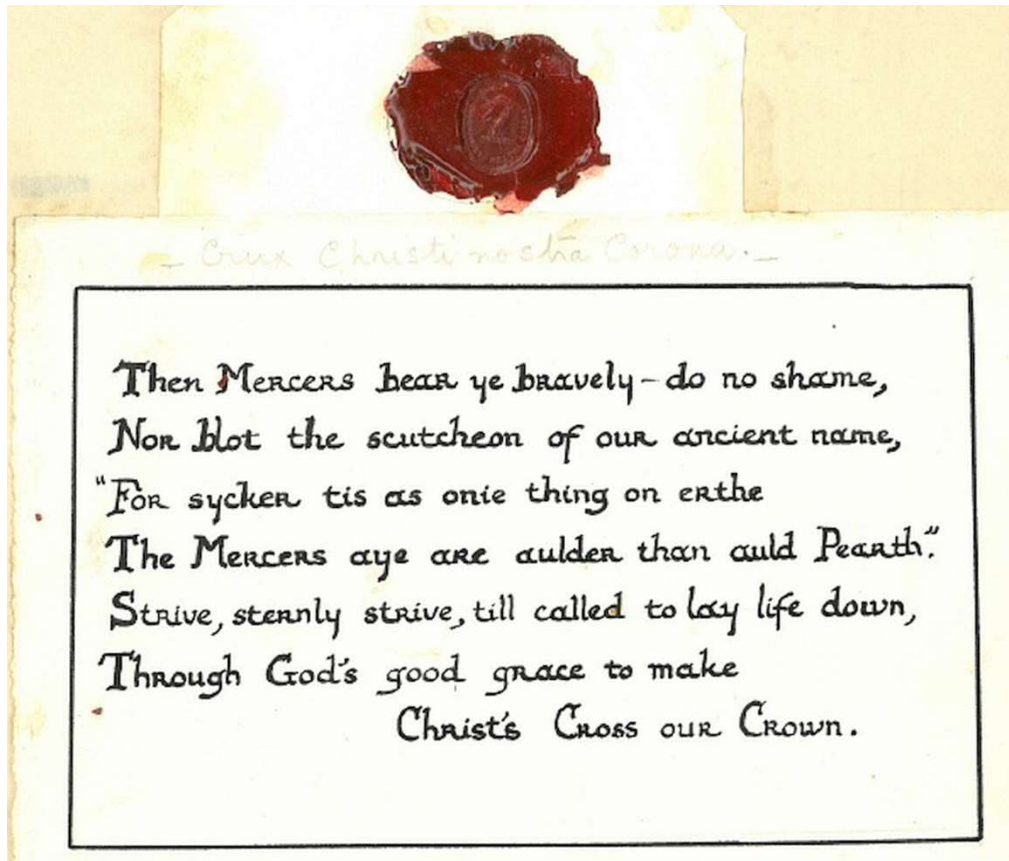 - Crux Christi nostra Corona. -
Then Mercers bear ye bravely - do no shame,
Nor blot the scutcheon of our ancient name,
"For sycker tis as onie thing on erthe
The Mercers aye are aulder than auld Pearth."
Strive, sternly strive, till called to lay life down,
Through God's good grace to make
Christ's Cross our Crown.